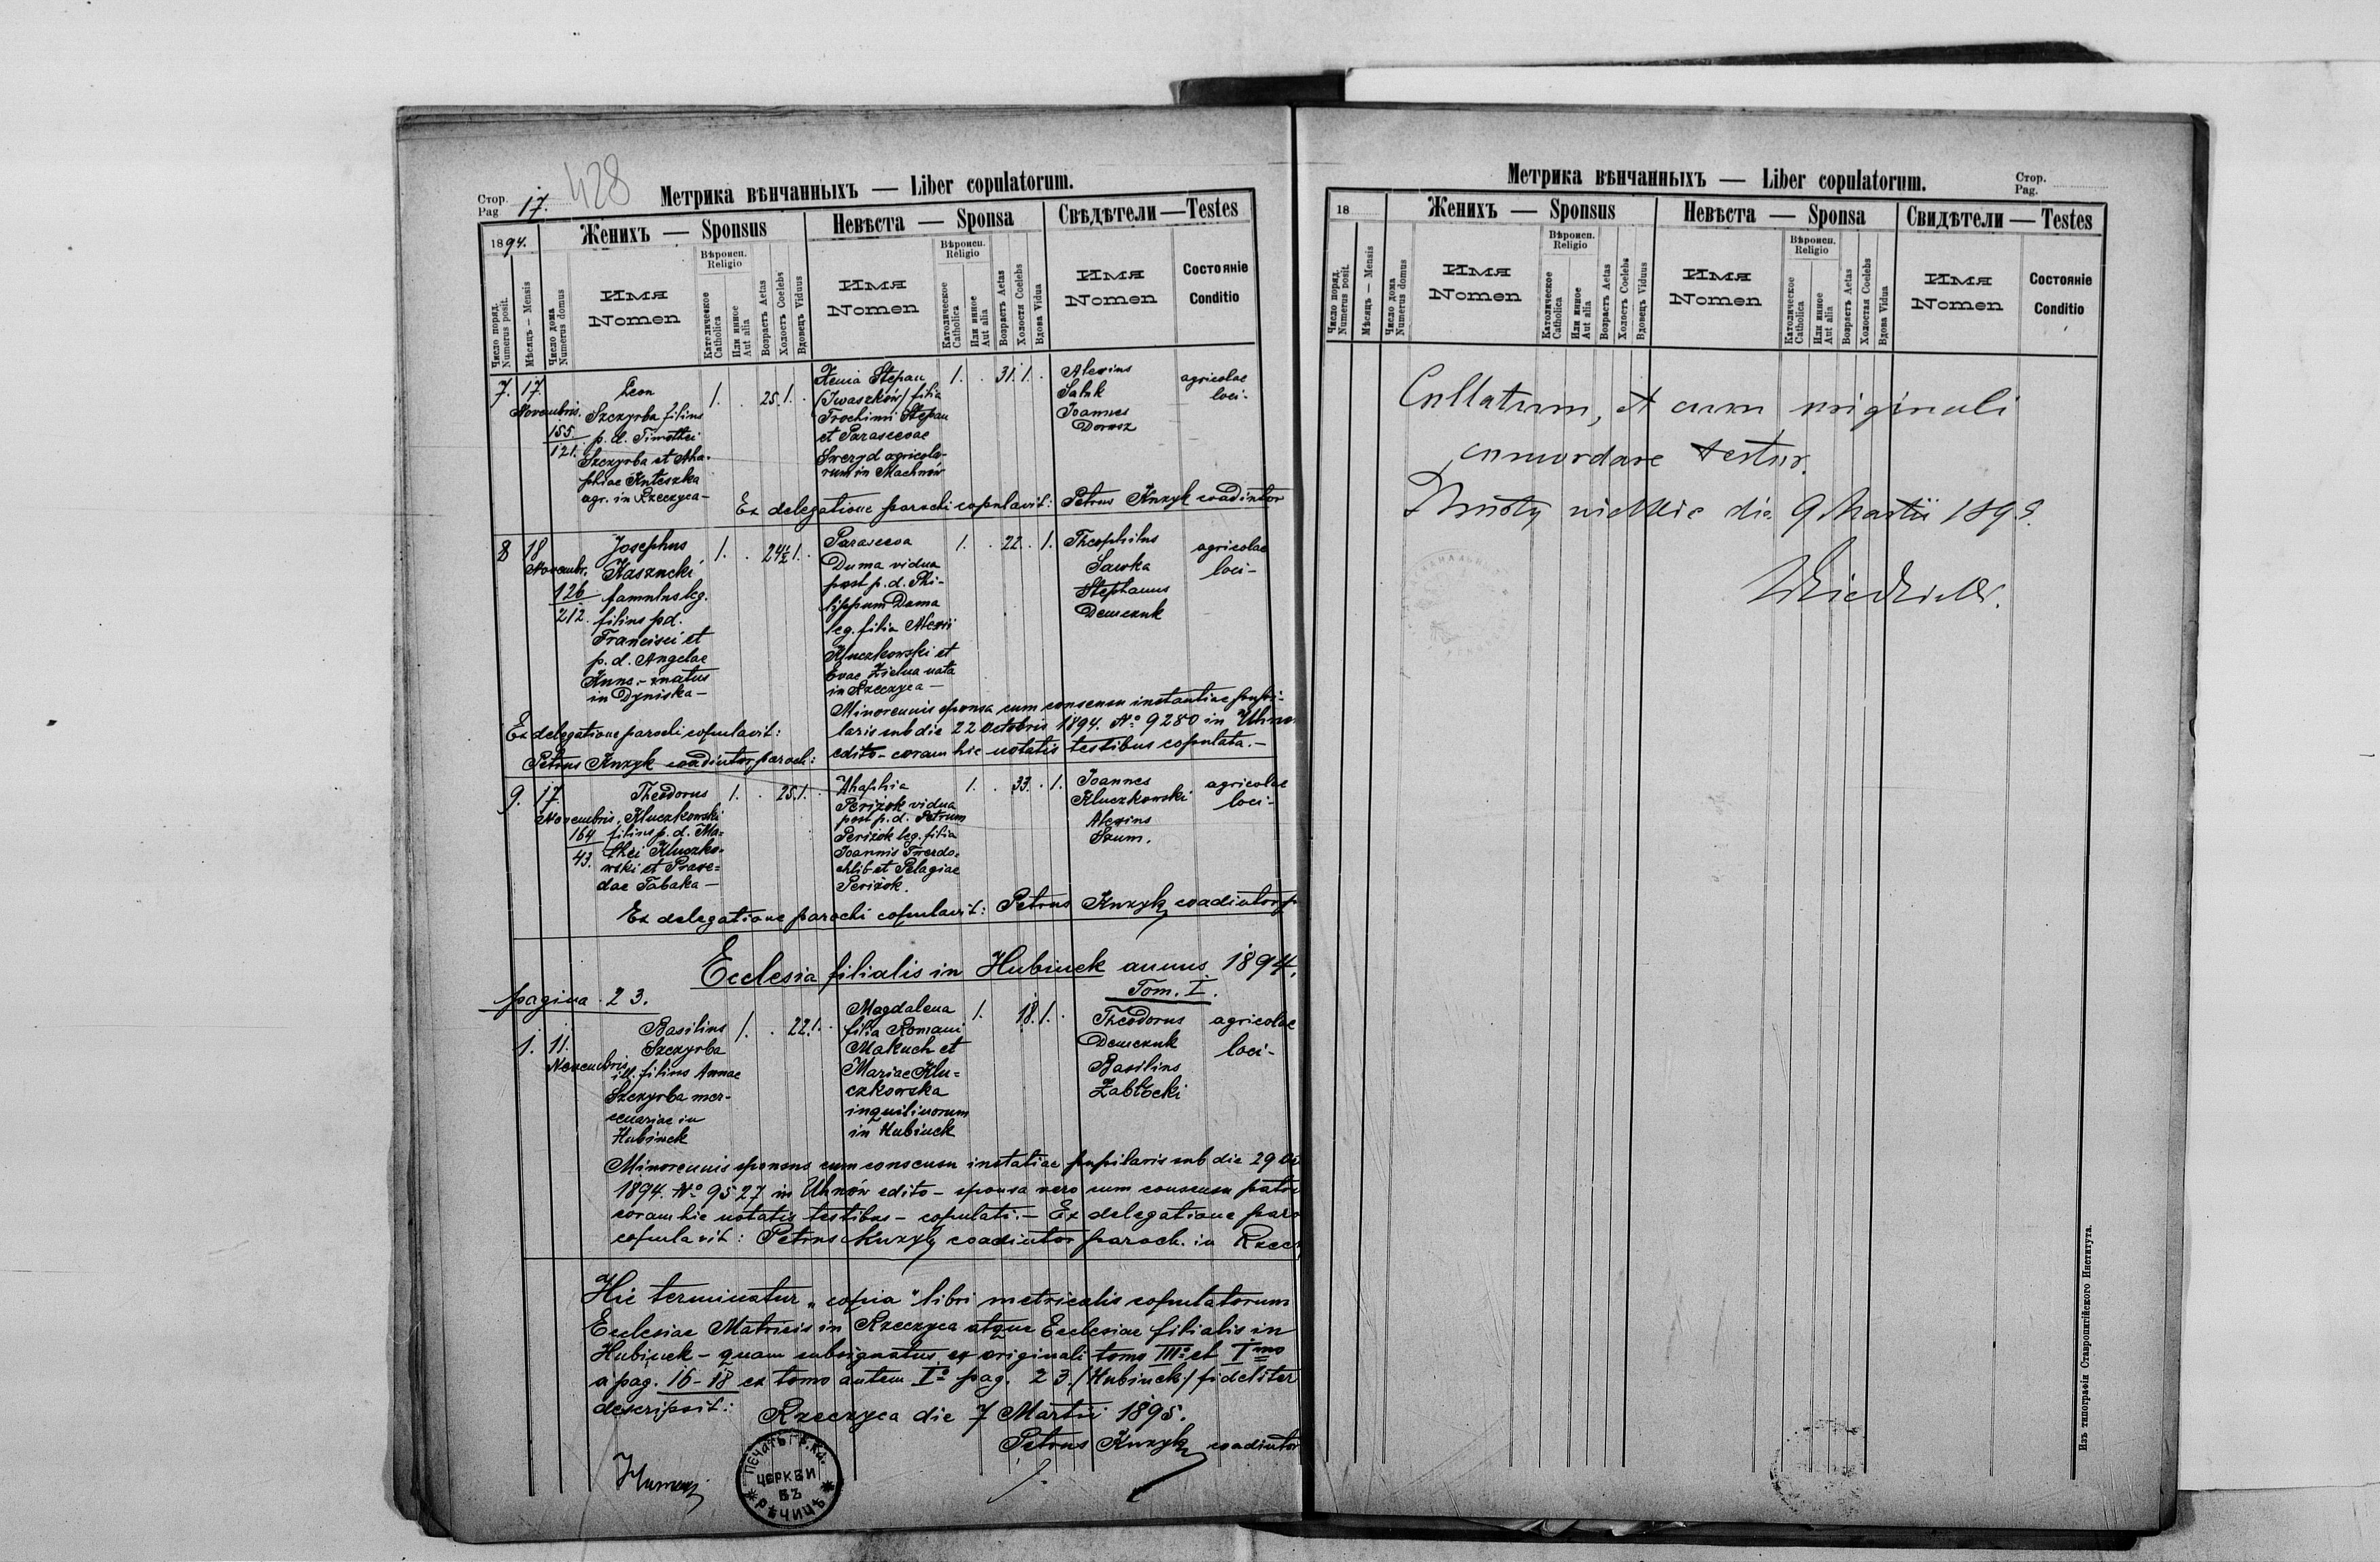 Стор.
Pag. 17.
428
Метрика вѣнчанныхъ — Liber copulatorum.
1894.
Женихъ — Sponsus
Невѣста — Sponsa
Свѣдѣтели — Testes
Число поряд.
Numerus posit.
Мѣсяцъ — Mensis
Число дома
Numerus domus
Имя
Nomen
Вѣроисп.
Religio
Католическое
Catholica
Или инное
Aut alia
Возрастъ Aetas
Холостъ Coelebs
Вдовецъ Viduus
Имя
Nomen
Вѣроисп.
Religio
Католическое
Catholica
Или инное
Aut alia
Возрастъ Aetas
Холостя Coelebs
Вдова Vidua
Имя
Nomen
Состояніе
Conditio
7. 17.
Novembris.
155.
121.
Leon
Szczyrba filius
p. d. Timothei
Szczyrba et Aha-
phiae Kuteszka
agr. in Rzeczyca —
1. . 25. 1. .
Xenia Stepan
/Iwaszków/ filia
Trochimi Stepan
et Parascevae
agricola-
rum in Machnów
1. . 31. 1. .
Alexius
Joannes
agricolae
loci.
Ex delegatione parochi copulavit: Petrus Knzyk coadiutor
8 18
Novembr.
126
212.
Josephus
Kaszncki
famulus leg.
filius p.d.
Francisci et
p. d. Angelae
natus
in Dyniska —
1. . 24½ 1. .
Parasceva
Duma vidua
post p. d. Phi-
lippum Duma
leg. filia Alexii
Kluczkowski et
Evae Zielna nata
in Rzeczyca —
1. . 22. . 1.
Theophilus
Sawka
Stephanus
Demczuk
agricolae
loci -
Minorennis sponsa cum consensu instantiae pupi-
laris sub die 22 Octobris 1894. No 9280 in
edito - coram hic notatis testibus copulata. —
Ex delegatione parochi copulavit:
Petrus Knzyk coadiutor paroch:
9. 17.
Novembris.
164
43.
Theodorus
Kluczkowski
filius p. d. Ma-
thei Kluczko-
wski et Praxe-
dae Tabaka —
1. . 25. 1. .
Ahaphia
Periżok vidua
post p. d. Petrum
Periżok leg. filia
Joannis Twerdo-
chlib et Pelagiae
Periżok.
1. . 33. . 1.
Joannes
Kluczkowski
Alexius
Szum.
agricolae
loci -
Ex delegatione parochi copulavit: Petrus Knzyk coadiutor p
Ecclesia filialis in Hubinek annus 1894.
pagina 23.
Tom. I.
1. 11.
Novembris
Basilius
Szczyrba
ill. filius Annae
Szczyrba mer-
cenariae in
Hubinek
1. . 22. 1. .
Magdalena
filia Romani
Makuch et
Mariae Klu-
czkowska
inquilinorum
in Hubinek
1. 18. 1. .
Theodorus
Demczuk
Basilius
Zabłocki
agricolae
loci -
Minorennis sponsus cum consensu instatiae pupilaris sub die 29
1894. No 9527 in Uhnów edito - sponsa vero cum consensu
coram hic notatis testibus - copulati. - Ex delegatione
copulavit: Petrus Knzyk coadiutor paroch. in
Hic terminatur „copia" libri metricalis copulatorum
Ecclesiae Matricis in Rzeczyca atque Ecclesiae filialis in
Hubinek - quam subsignatus ex originali tomo IIIo et Imo
a pag. 16 - 18 ex tomo autem Io pag. 23. /Hubinek/ fideliter
descripsit:
Rzeczyca die 7 Martii 1895.
Petrus Knzyk coadiutor
ПЕЧАТЬ ГР. КА.
ЦЕРКВИ
ВЪ
РѢЧИЦѢ
Метрика вѣнчанныхъ — Liber copulatorum.
Стор.
Pag.
18
Женихъ — Sponsus
Невѣста — Sponsa
Свидѣтели — Testes
Число поряд.
Numerus posit.
Мѣсяцъ — Mensis
Число дома
Numerus domus
Имя
Nomen
Вѣроисп.
Religio
Католическое
Catholica
Или инное
Aut alia
Возрастъ Aetas
Холостъ Coelebs
Вдовецъ Viduus
Имя
Nomen
Вѣроисп.
Religio
Католическое
Catholica
Или инное
Aut alia
Возрастъ Aetas
Холостая Coelebs
Вдова Vidua
Имя
Nomen
Состояніе
Conditio
Collatum, et cum originali
concordare testor.
Mosty wielkie die 9 Martii 1895.
Изъ типографіи Ставропигійского Института.